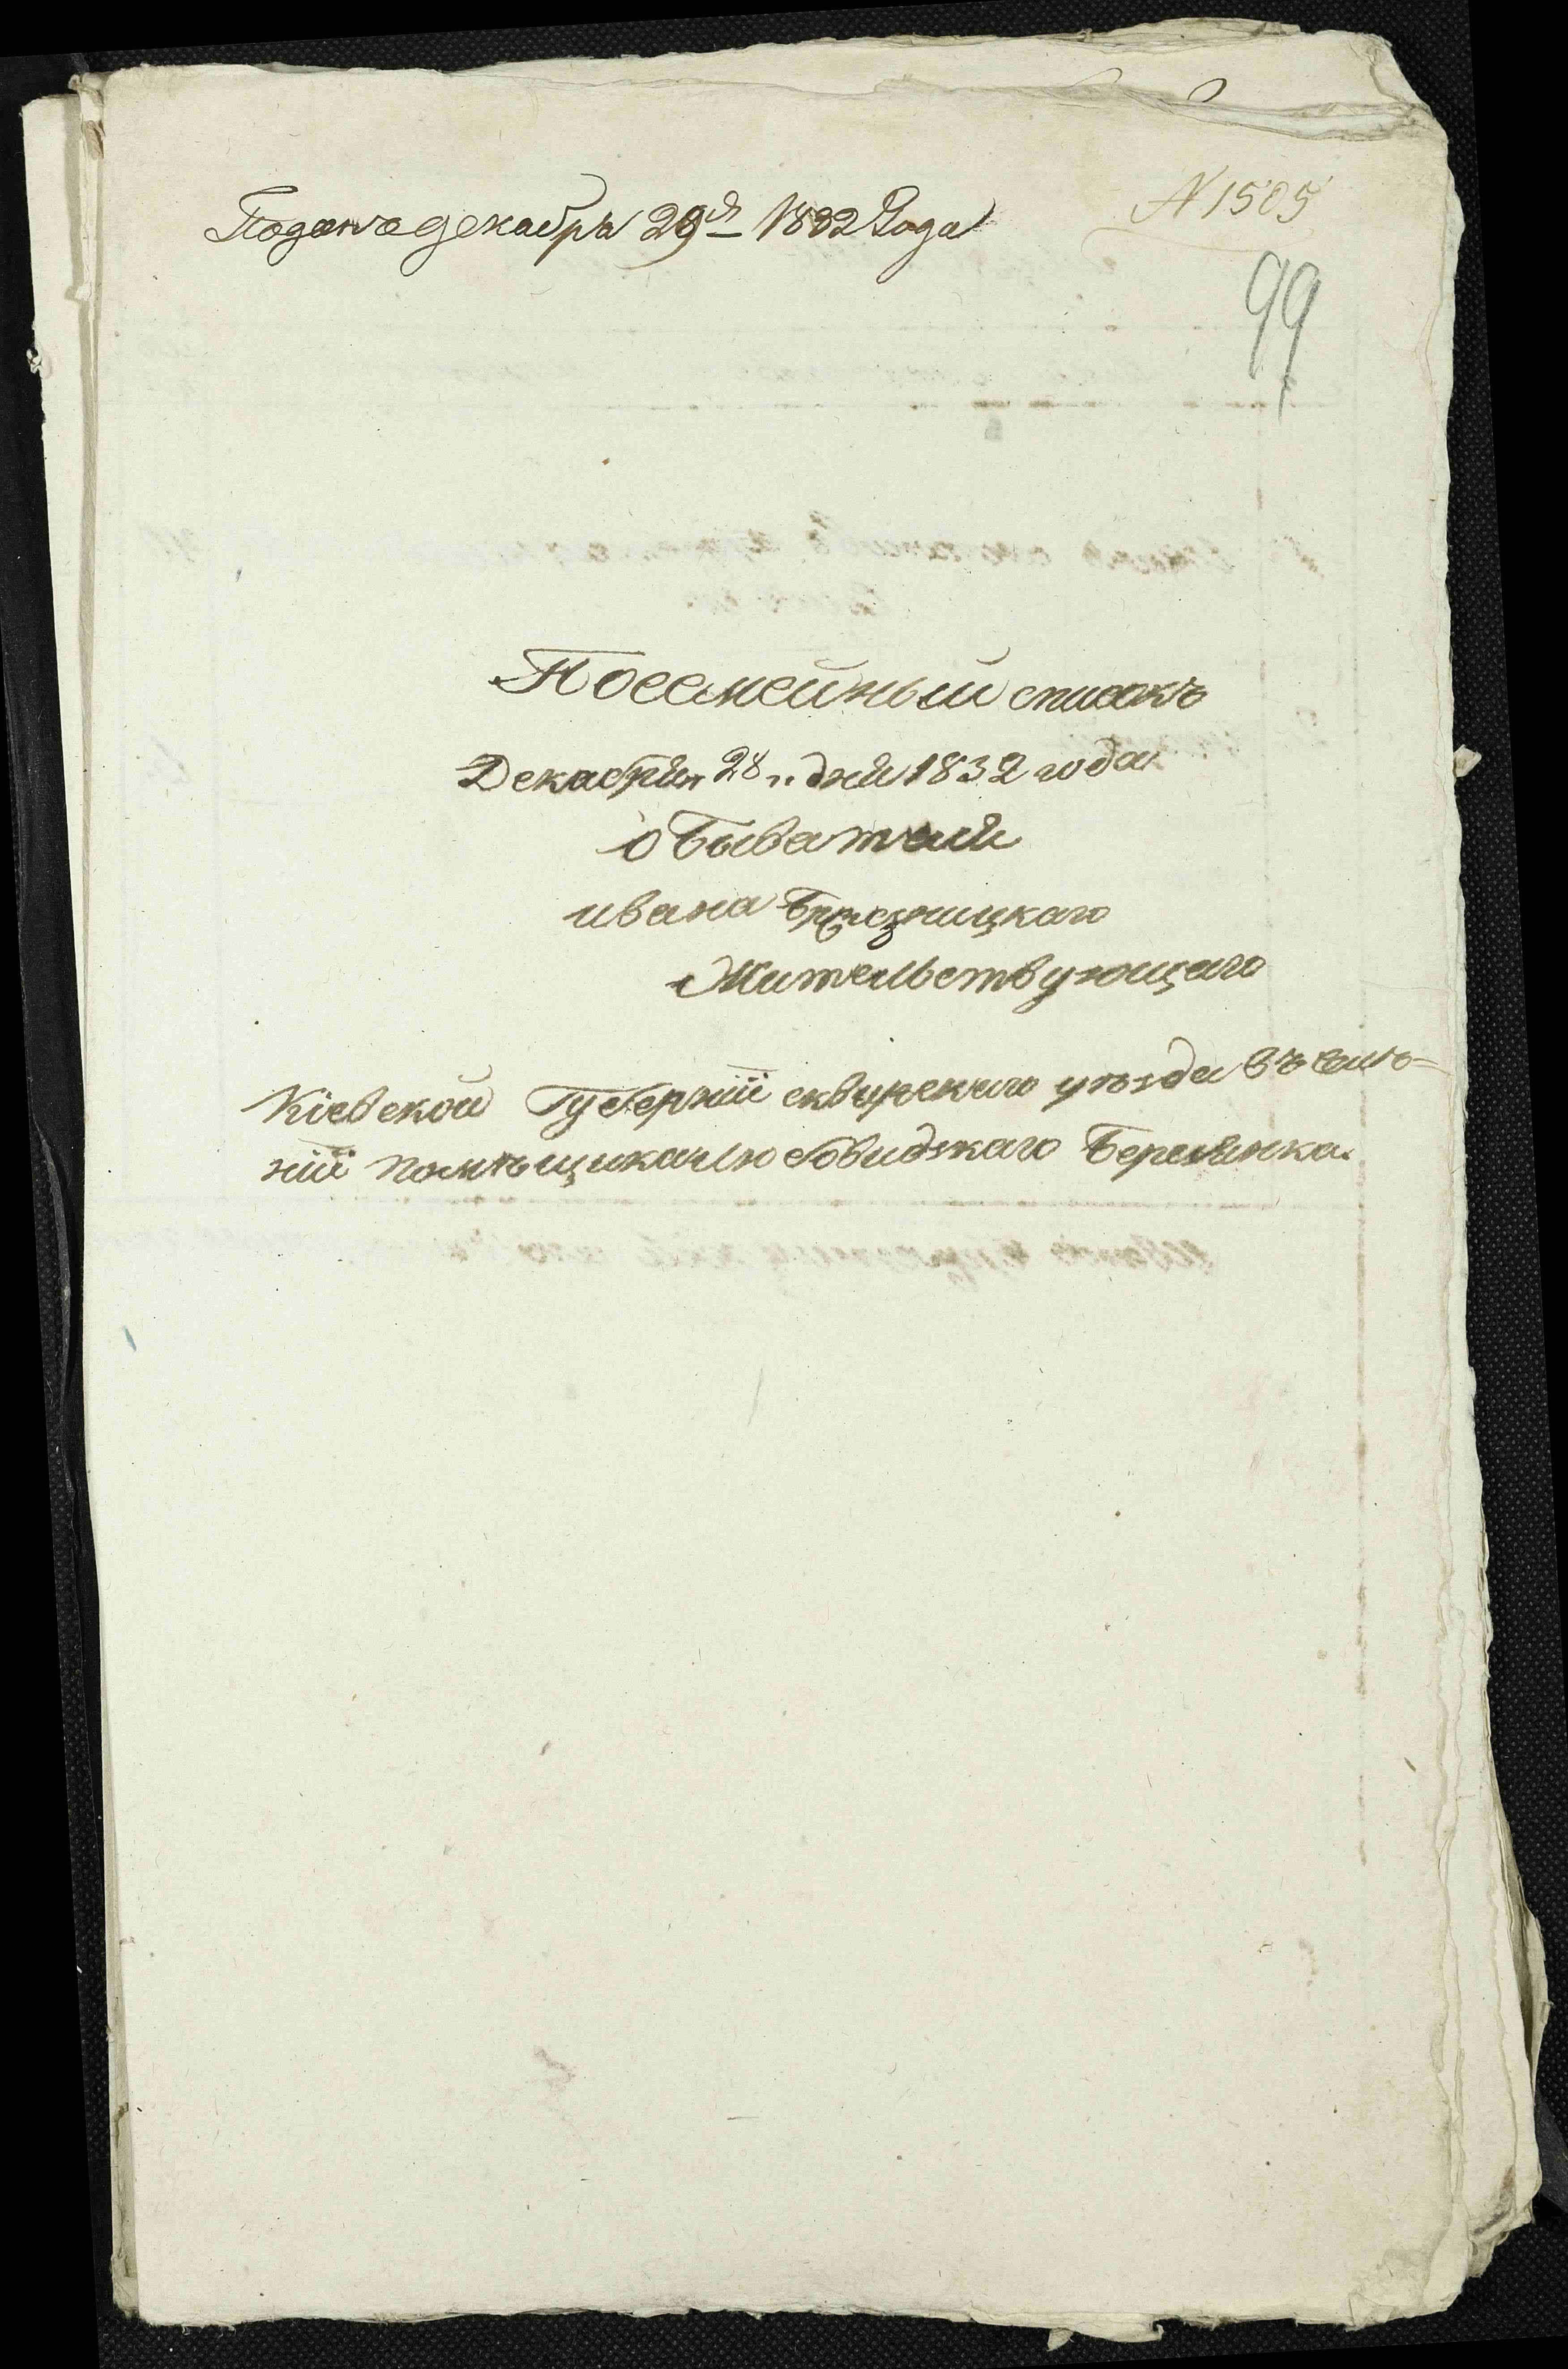 Подано декабря 29го 1832 Года
N 1505
99
Посемейный списокъ
Декабря 28 дня 1832 года
обывателя
ивана
Жительствующаго
Кіевской Губерніи сквирскаго уѣзда въ имѣ-
ніи помѣщика